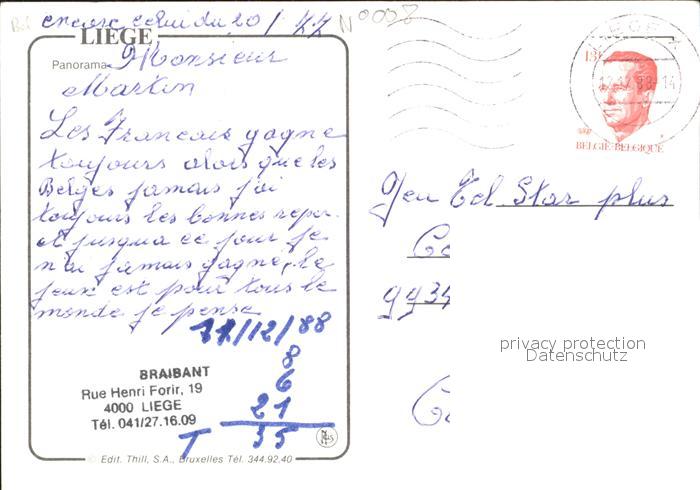 encore celui du 20/ N° 0028
LIEGE
Panorama. Monsieur
Martin
Les Francais gagne
toujours alors que les
Belges jamais j'ai
toujours les bonnes repon.
et jusqua ce jour je
n'ai jamais gagné, le
jeux est pour tous le
monde je pense
11/12/88
8
6
21
T 35
BRAIBANT
Rue Henri Forir, 19
4000 LIEGE
Tél. 041/27.16.09
Edit. Thill, S.A., Bruxelles Tél. 344.92.40
13F
12.12.88-14
BELGIE-BELGIQUE
Jeu Tél Star plus
privacy protection
Datenschutz